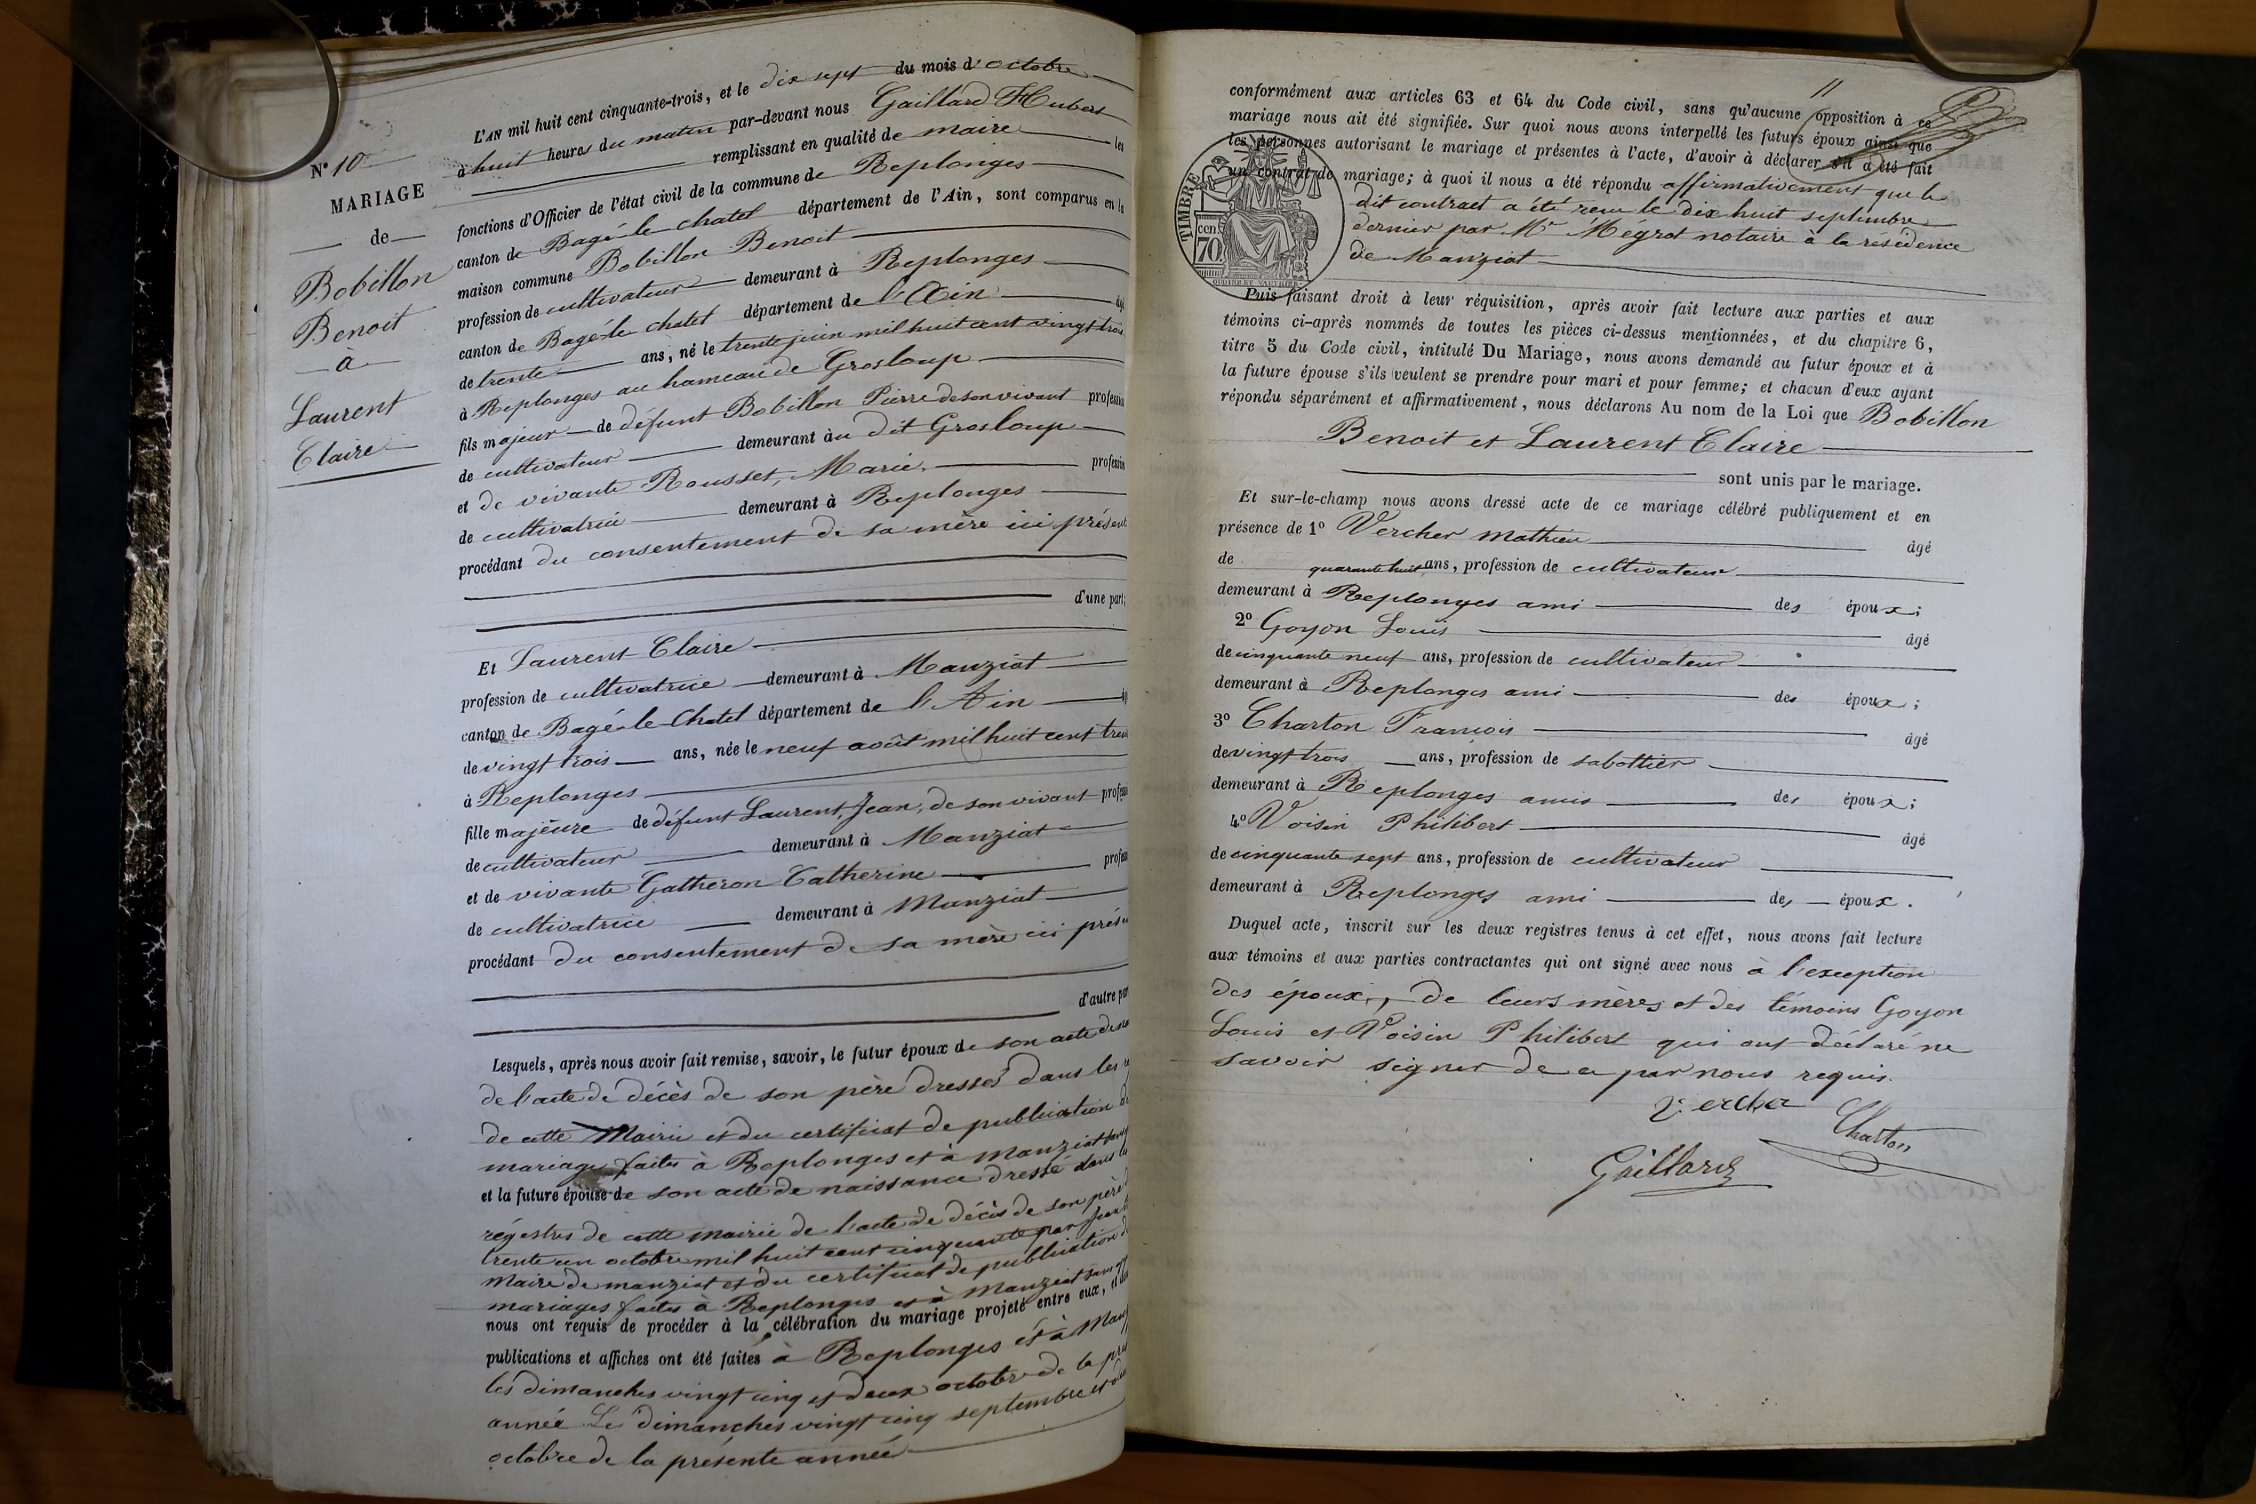 N° 10
MARIAGE
de
Bobillon
Benoit
à
Laurent
Claire
L'AN mil huit cent cinquante-trois, et le dix sept du mois d'octobre
à huit heures du matin par-devant nous Gaillard Hubert
remplissant en qualité de maire les
fonctions d'Officier de l'état civil de la commune de Replonges
canton de Bagé le chatel département de l'Ain, sont comparus en la
maison commune Bobillon Benoit
profession de cultivateur demeurant à Replonges
canton de Bagé le chatel département de l'Ain âgé
de trente ans, né le trente juin mil huit cent vingt trois
à Replonges au hameau de Grosloup
fils majeur de défunt Bobillon Pierre de son vivant profession
de cultivateur demeurant au dit Grosloup
et de vivante Rousset, Marie, profession
de cultivatrice demeurant à Replonges
procédant du consentement de sa mère ici présente
d'une part;
Et Laurent Claire
profession de cultivatrice demeurant à Manziat
canton de Bagé-le-Chatel département de l'Ain
de vingt trois ans, née le neuf août mil huit cent trente
à Replonges
fille majeure de défunt Laurent, Jean, de son vivant profession
de cultivateur demeurant à Manziat
et de vivante Gatheron Catherine profession
de cultivatrice demeurant à Manziat
procédant du consentement de sa mère ici
d'autre part
Lesquels, après nous avoir fait remise, savoir, le futur époux de son acte de
de l'acte de décès de son père dressés dans les
de cette Mairie et du certificat de publication de
mariages faites à Replonges et à Manziat
et la future épouse de son acte de naissance dressé dans les
régistres de cette mairie de l'acte de décès de son père
trente un octobre mil huit cent cinquante par
Maire de manziat et du certificat de publication de
mariages faites à Replonges et à Manziat sans
nous ont requis de procéder à la célébration du mariage projeté entre eux, et
publications et affiches ont été faites à Replonges et à
les dimanches vingt cinq et deux octobre de la
année Le dimanches vingt cinq septembre et
octobre de la présente année
11
conformément aux articles 63 et 64 du Code civil, sans qu'aucune opposition à ce
mariage nous ait été signifiée. Sur quoi nous avons interpellé les futurs époux ainsi que
les personnes autorisant le mariage et présentes à l'acte, d'avoir à déclarer s'il a été fait
un contrat de mariage; à quoi il nous a été répondu affirmativement que le
dit contract a été reçu le dix huit septembre
dernier par Mr Mégrat notaire à la résidence
de Manziat
TIMBRE
cen
70
Puis faisant droit à leur réquisition, après avoir fait lecture aux parties et aux
témoins ci-après nommés de toutes les pièces ci-dessus mentionnées, et du chapitre 6,
titre 5 du Code civil, intitulé Du Mariage, nous avons demandé au futur époux et à
la future épouse s'ils veulent se prendre pour mari et pour femme; et chacun d'eux ayant
répondu séparément et affirmativement, nous déclarons Au nom de la Loi que Bobillon
Benoit et Laurent Claire
sont unis par le mariage.
Et sur-le-champ nous avons dressé acte de ce mariage célébré publiquement et en
présence de 1° Vercher Mathieu âgé
de quarante huit ans, profession de cultivateur
demeurant à Replonges ami des époux;
2° Goyon Louis âgé
de cinquante neuf ans, profession de cultivateur
demeurant à Replonges ami des époux;
3° Charton François âgé
de vingt trois ans, profession de sabottier
demeurant à Replonges amis des époux;
4° Voisin Philibert âgé
de cinquante sept ans, profession de cultivateur
demeurant à Replonges ami des époux.
Duquel acte, inscrit sur les deux registres tenus à cet effet, nous avons fait lecture
aux témoins et aux parties contractantes qui ont signé avec nous à l'exception
des époux, de leurs mères et des témoins Goyon
Louis et Voisin Philibert qui ont déclaré ne
savoir signer de ce par nous requis.
Vercher
Charton
Gaillard